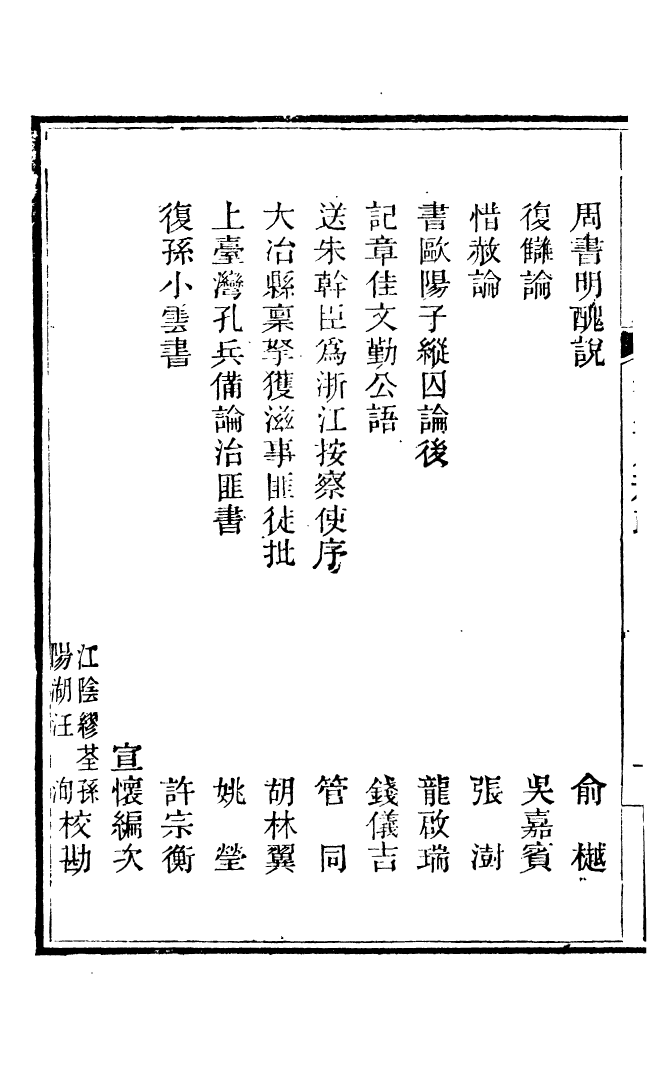 周書明醜說　俞樾
復讎論　吳嘉賓
惜赦論　張澍
書歐陽子縱囚論後　龍啟瑞
記章佳文勤公語　錢儀吉
送朱幹臣爲浙江按察使序　管同
大冶縣稟拏獲滋事匪徒批　胡林翼
上臺灣孔兵備論治匪書　姚瑩
復孫小雲書　許宗衡
宣懷編次
江陰繆荃孫
陽湖汪洵
校勘